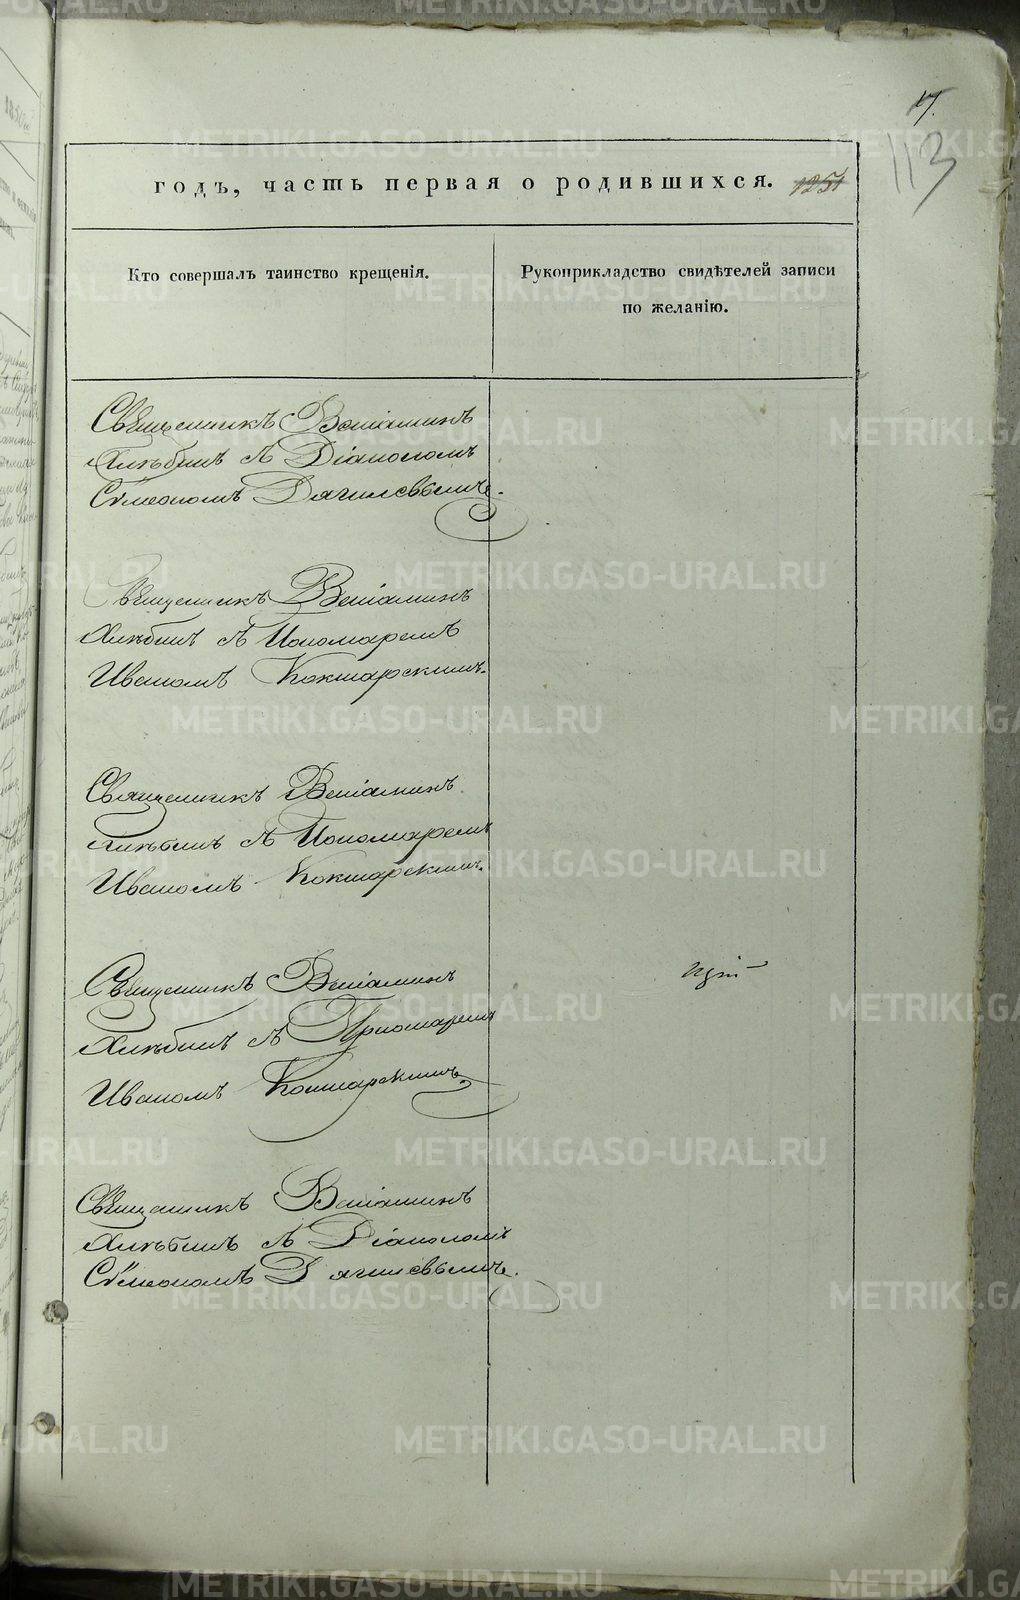 17.
113
годъ, часть первая о родившихся. 1251
Кто совершалъ таинство крещенія.
Рукоприкладство свидѣтелей записи
по желанію.
Священникъ Веніаминъ
Хлѣбинъ съ Діакономъ
Сѵмеономъ Дягилевымъ.
Священникъ Веніаминъ
Хлѣбинъ съ Пономаремъ
Иваномъ Кокшарскимъ.
Священникъ Веніаминъ
Хлѣбинъ съ Пономаремъ
Иваномъ Кокшарскимъ.
Священникъ Веніаминъ
Хлѣбинъ съ Пономаремъ
Иваномъ Кокшарскимъ.
Священникъ Веніаминъ
Хлѣбинъ съ Діакономъ
Сѵмеономъ Дягилевымъ.
METRIKI.GASO-URAL.RU